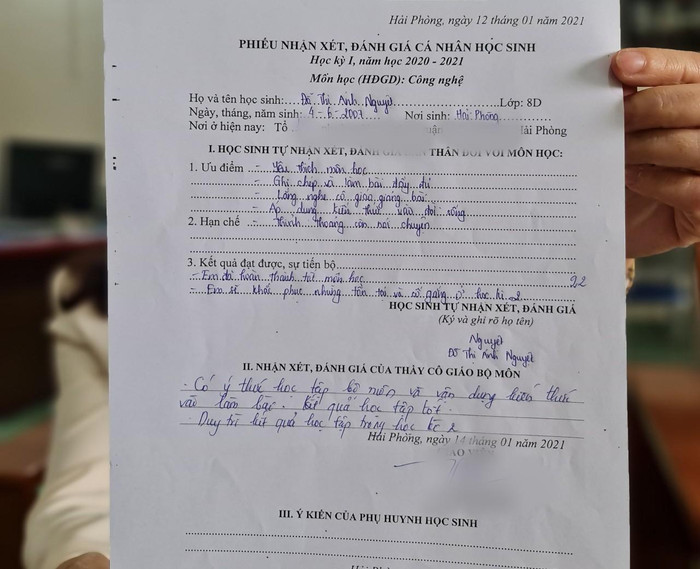 Hải Phòng, ngày 12 tháng 01 năm 2021
PHIẾU NHẬN XÉT, ĐÁNH GIÁ CÁ NHÂN HỌC SINH
Học kỳ I, năm học 2020 - 2021
Môn học (HĐGD): Công nghệ
Họ và tên học sinh: Đỗ Thị Ánh Nguyệt Lớp: 8D
Ngày, tháng, năm sinh: 4-6-2007 Nơi sinh: Hải Phòng
Nơi ở hiện nay: Tổ Hải Phòng
I. HỌC SINH TỰ NHẬN XÉT, ĐÁNH THÂN ĐỐI VỚI MÔN HỌC:
1. Ưu điểm - Yêu thích môn học
- Ghi chép và làm bài đầy đủ
- Lắng nghe cô giáo giảng bài
- Áp dụng kiến thức vào đời sống
2. Hạn chế - Thỉnh thoảng còn nói chuyện
3. Kết quả đạt được, sự tiến bộ
- Em đã hoàn thành tốt môn học 9,2
- Em sẽ khắc phục những tồn tại và cố gắng ở học kì 2
HỌC SINH TỰ NHẬN XÉT, ĐÁNH GIÁ
(Ký và ghi rõ họ tên)
Nguyệt
Đỗ Thị Ánh Nguyệt
II. NHẬN XÉT, ĐÁNH GIÁ CỦA THẦY CÔ GIÁO BỘ MÔN
- Có ý thức học tập bộ môn và vận dụng kiến thức
vào làm bài. Kết quả học tập tốt.
- Duy trì kết quả học tập trong học kì 2
Hải Phòng, ngày 14 tháng 01 năm 2021
III. Ý KIẾN CỦA PHỤ HUYNH HỌC SINH